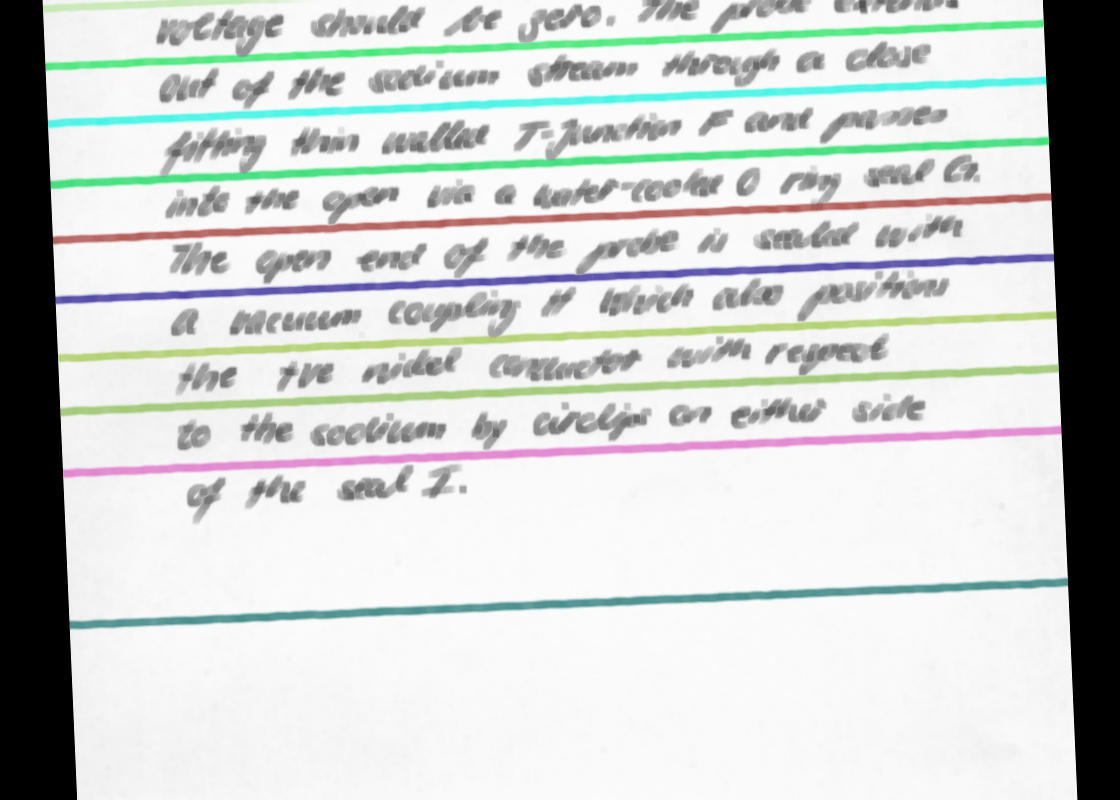 voltage should be zero. The probe extends
out of the sodium stream through a close
fitting thin walled T-Junction F and passes
into the open via a water-cooled O ring seal G.
The open end of the probe is sealed with
a vacuum coupling H which also positions
the +ve nickel conductor with respect
to the sodium by circlips on either side
of the seal I.